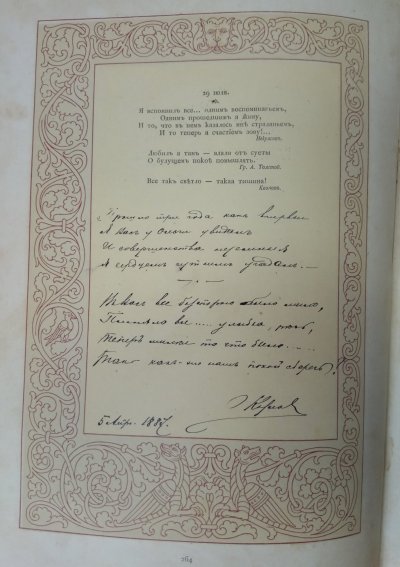 29 юля.
Я вспомнилъ все... однимъ воспоминаньемъ,
Однимъ прошедшимъ я живу,
И то, что въ немъ казалось мнѣ страданьемъ,
И то теперь я счастіемъ зову!...
Некрасовъ.
Любилъ я тамъ — вдали отъ суеты
О будущемъ покоѣ помышлять.
Гр. А. Толстой.
Все такъ свѣтло — такая тишина!
Прошло три года какъ впервые
Я Васъ у увидалъ
И совершенства
Я сердцемъ чуткимъ угадалъ. —
Въ Васъ все было мило,
Плѣняло все.... улыбка, рѣчь,
Теперь то что было....
Такъ какъ-же нашъ покой сберечь?
5 Апр. 1887.
264